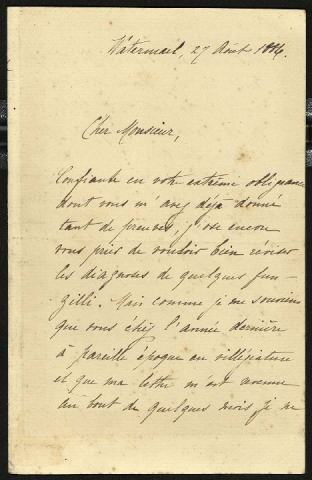 Watermael, 27 Août 1886.
Cher Monsieur,
Confiante en votre extrême obligeance
dont vous m'avez déjà donné
tant de preuves, j'ose encore
vous prier de vouloir bien reviser
les diagnoses de quelques fun-
gilli. Mais comme je me souviens
que vous étiez l'année dernière
à pareille époque en villégiature
et que ma lettre m'est revenue
au bout de quelques mois je ne